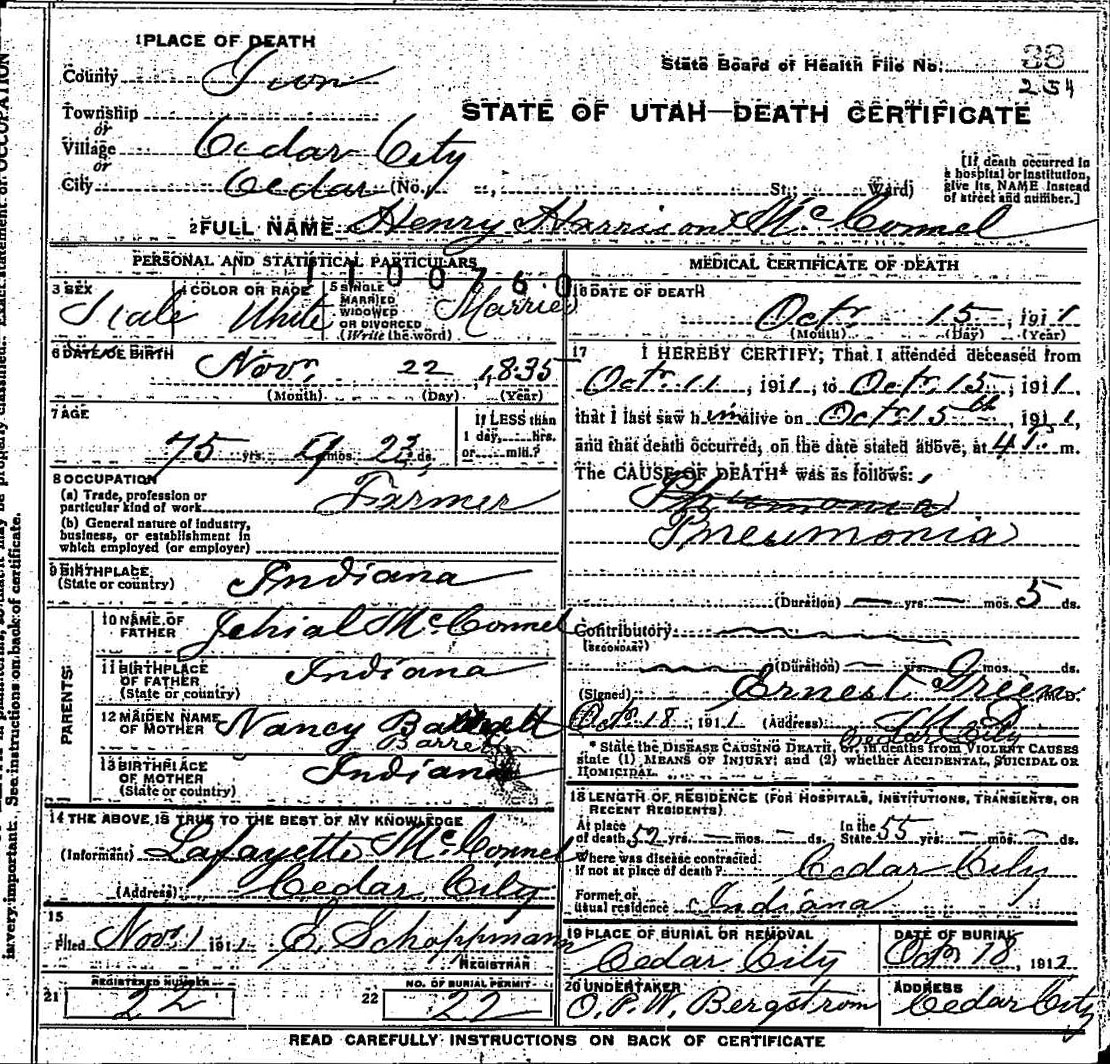 1 PLACE OF DEATH
County Iron
State Board of Health File No. 38
254
Township
or
Village Cedar City
or
City Cedar (No. St.; Ward)
STATE OF UTAH—DEATH CERTIFICATE
[If death occurred in a hospital or institution, give its NAME instead of street and number.]
2 FULL NAME Henry Harrison McConnel
1100760
PERSONAL AND STATISTICAL PARTICULARS
3 SEX Male
4 COLOR OR RACE White
5 SINGLE MARRIED WIDOWED OR DIVORCED (Write the word) Married
6 DATE OF BIRTH Nov. 22, 1835
(Month) (Day) (Year)
7 AGE
75 yrs. mos. 23 ds.
If LESS than 1 day, hrs. or min.?
8 OCCUPATION
(a) Trade, profession or particular kind of work Farmer
(b) General nature of industry, business, or establishment in which employed (or employer)
9 BIRTHPLACE (State or country) Indiana
PARENTS
10 NAME OF FATHER Jehial McConnel
11 BIRTHPLACE OF FATHER (State or country) Indiana
12 MAIDEN NAME OF MOTHER Nancy
13 BIRTHPLACE OF MOTHER (State or country) Indiana
14 THE ABOVE IS TRUE TO THE BEST OF MY KNOWLEDGE
(Informant) Lafayette McConnel
(Address) Cedar City
15
Filed Nov. 1 1911 E. Schoppmann
REGISTRAR
REGISTERED NUMBER
21 22
NO. OF BURIAL PERMIT
22 22
MEDICAL CERTIFICATE OF DEATH
16 DATE OF DEATH
Oct. 15, 1911
(Month) (Day) (Year)
17 I HEREBY CERTIFY, That I attended deceased from
Oct. 11, 1911, to Oct. 15, 1911,
that I last saw him alive on Oct. 15th, 1911,
and that death occurred, on the date stated above, at m.
The CAUSE OF DEATH* was as follows:
Pneumonia
(Duration) — yrs. — mos. 5 ds.
Contributory
(SECONDARY)
(Duration) — yrs. mos. ds.
(Signed) Ernest Green M.D.
Oct 18, 1911 (Address)
Cedar City
* State the DISEASE CAUSING DEATH, or, in deaths from VIOLENT CAUSES state (1) MEANS OF INJURY; and (2) whether ACCIDENTAL, SUICIDAL OR HOMICIDAL.
18 LENGTH OF RESIDENCE (FOR HOSPITALS, INSTITUTIONS, TRANSIENTS, OR RECENT RESIDENTS)
At place of death 52 yrs. — mos. — ds. In the State 55 yrs. — mos. — ds.
Where was disease contracted if not at place of death? Cedar City
Former or usual residence Indiana
19 PLACE OF BURIAL OR REMOVAL Cedar City
DATE OF BURIAL Oct 18, 1912
20 UNDERTAKER O. P. W. Bergstrom
ADDRESS Cedar City
READ CAREFULLY INSTRUCTIONS ON BACK OF CERTIFICATE
is very important. See instructions on back of certificate.